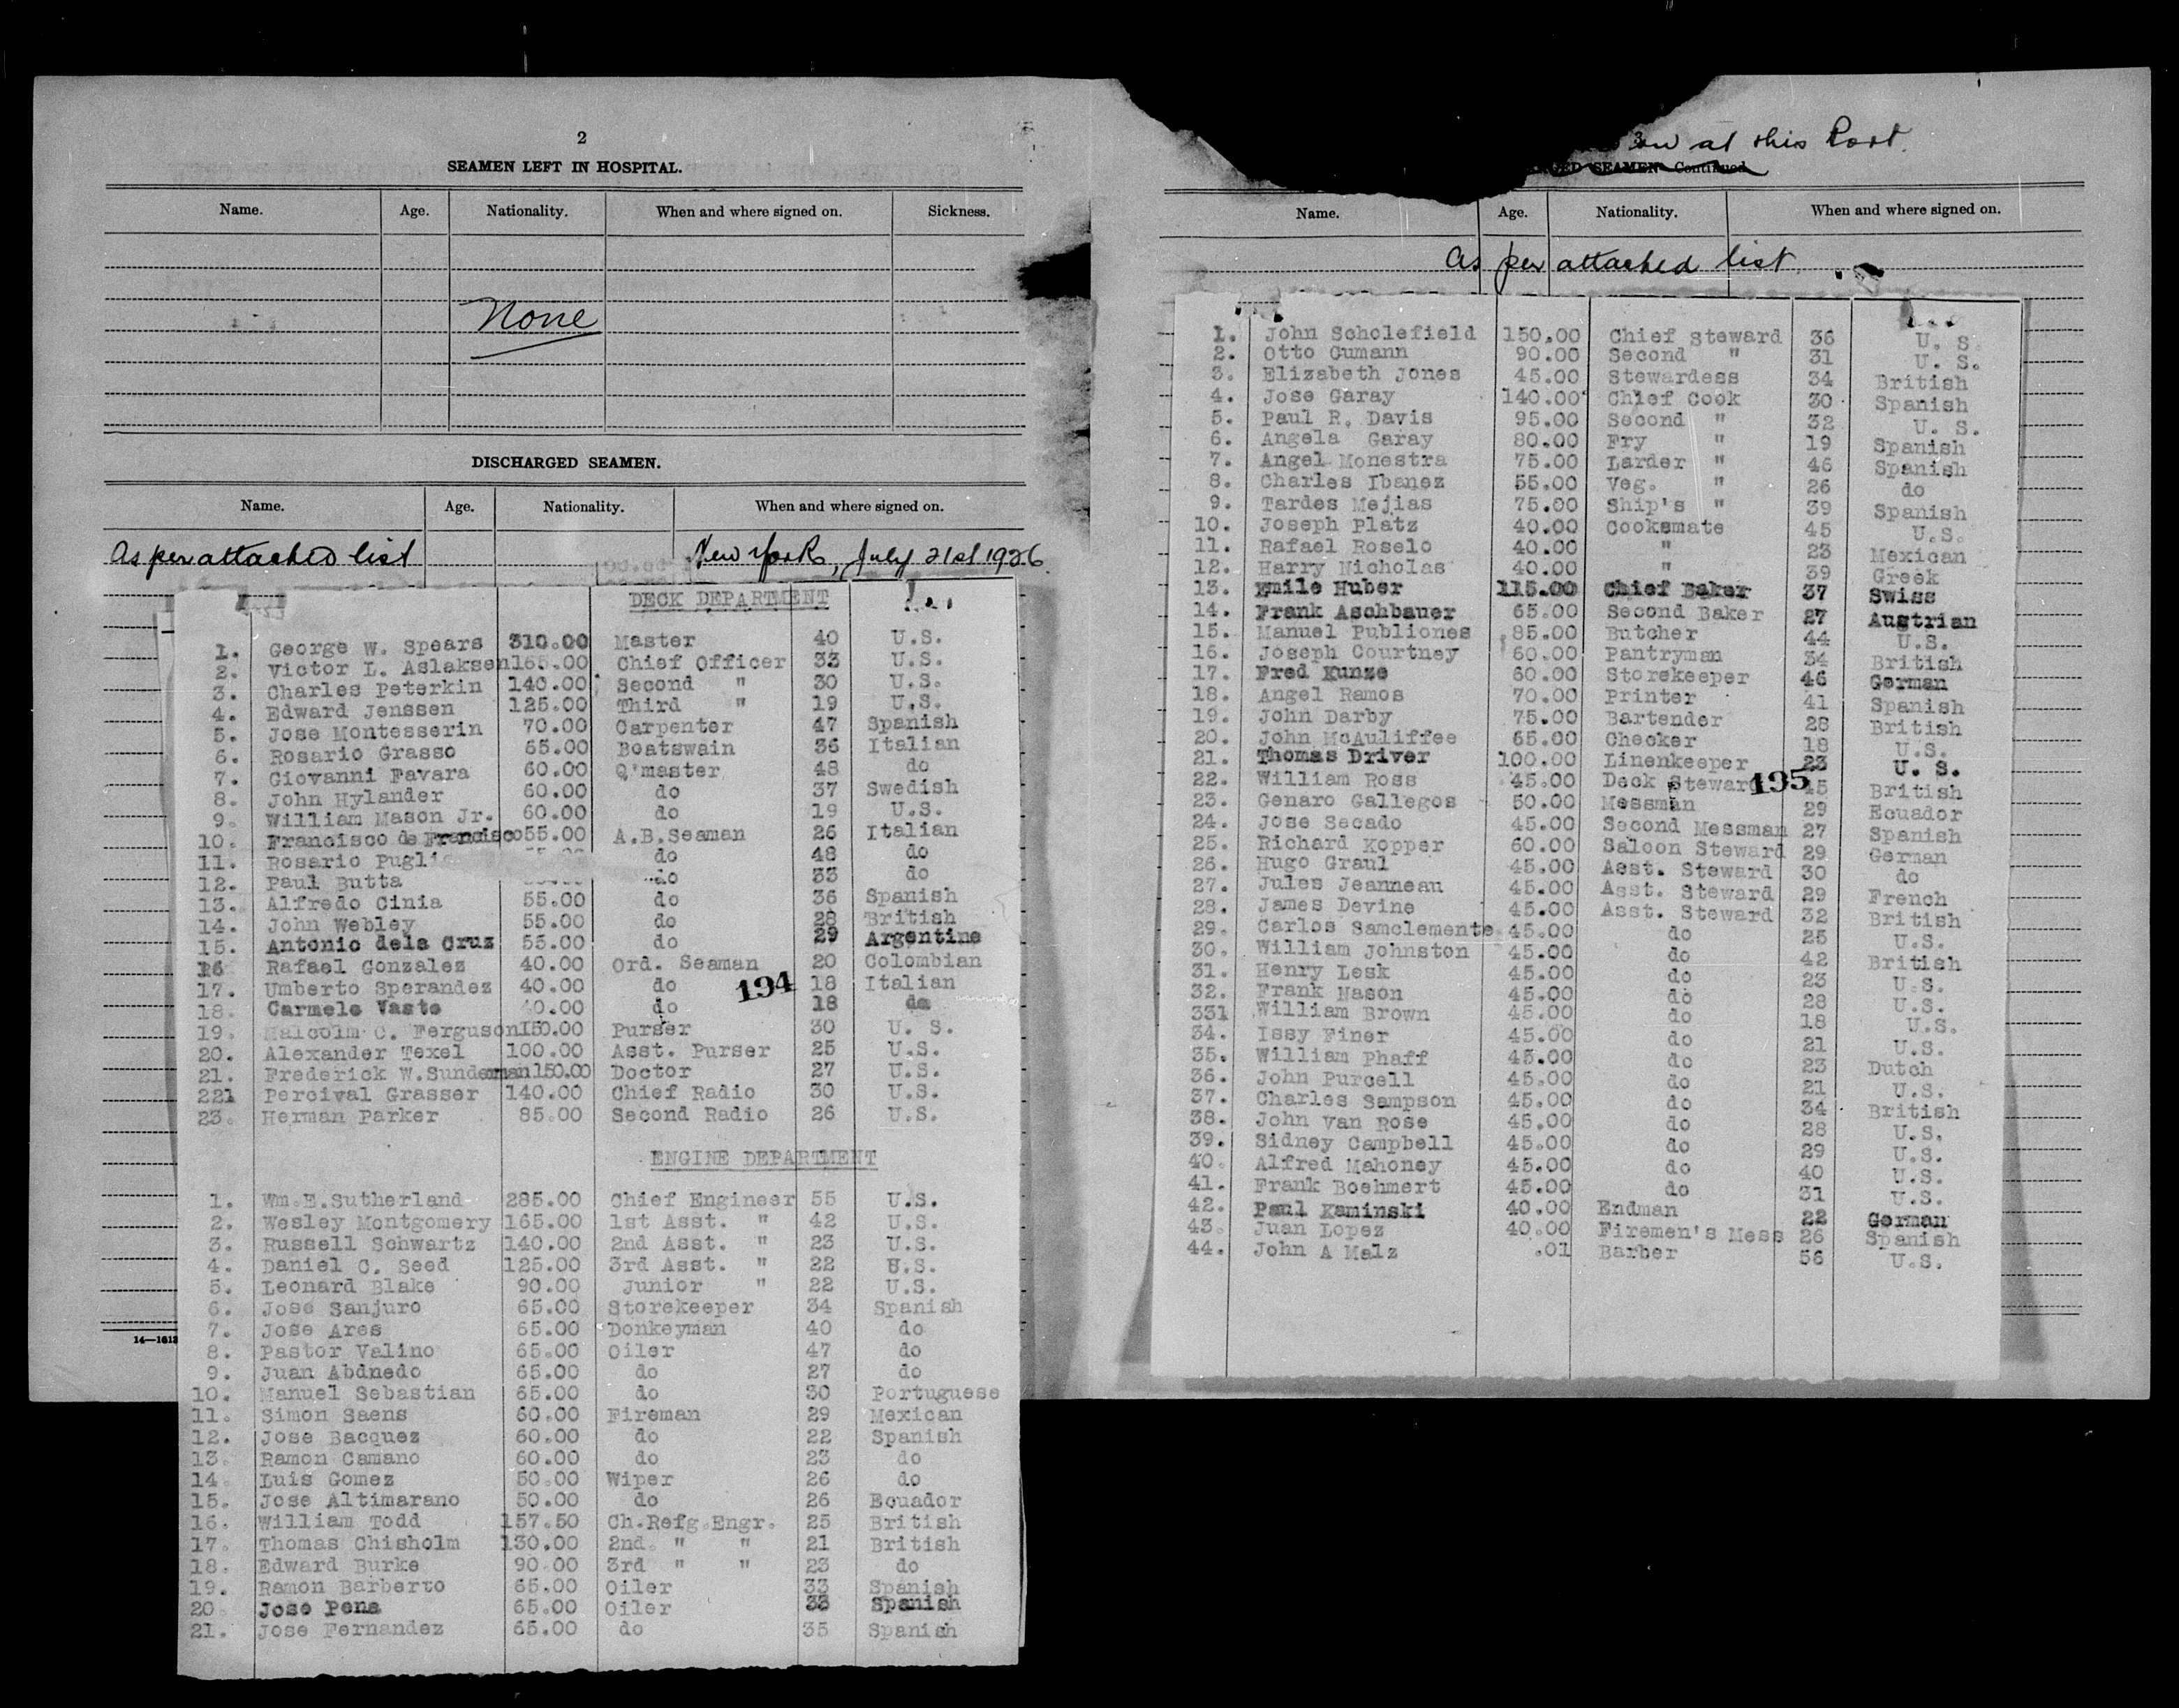 2
SEAMEN LEFT IN HOSPITAL.
Name. Age. Nationality. When and where signed on. Sickness.
None
DISCHARGED SEAMEN.
Name. Age. Nationality. When and where signed on.
As per attached list New York, July 21st 1926
DECK DEPARTMENT
1. George W. Spears 310.00 Master 40 U.S.
2. Victor L. Aslaksen 165.00 Chief Officer 33 U.S.
3. Charles Peterkin 140.00 Second " 30 U.S.
4. Edward Jenssen 125.00 Third " 19 U.S.
5. Jose Montesserin 70.00 Carpenter 47 Spanish
6. Rosario Grasso 65.00 Boatswain 36 Italian
7. Giovanni Favara 60.00 Q'master 48 do
8. John Hylander 60.00 do 37 Swedish
9. William Mason Jr. 60.00 do 19 U.S.
10. Francisco de Francisco 55.00 A.B.Seaman 26 Italian
11. Rosario do 48 do
12. Paul Butta do 33 do
13. Alfredo Cinia 55.00 do 36 Spanish
14. John Webley 55.00 do 28 British
15. Antonio dela Cruz 55.00 do 29 Argentine
16 Rafael Gonzalez 40.00 Ord. Seaman 20 Colombian
17. Umberto Sperandez 40.00 do 18 Italian
194
18. Carmelo Vasto 40.00 do 18 do
19. Malcolm C. Ferguson 150.00 Purser 30 U. S.
20. Alexander Texel 100.00 Asst. Purser 25 U.S.
21. Frederick W.Sundeman 150.00 Doctor 27 U.S.
221 Percival Grasser 140.00 Chief Radio 30 U.S.
23. Herman Parker 85.00 Second Radio 26 U.S.
ENGINE DEPARTMENT
1. Wm.E.Sutherland 285.00 Chief Engineer 55 U.S.
2. Wesley Montgomery 165.00 1st Asst. " 42 U.S.
3. Russell Schwartz 140.00 2nd Asst. " 23 U.S.
4. Daniel C. Seed 125.00 3rd Asst. " 22 U.S.
5. Leonard Blake 90.00 Junior " 22 U.S.
6. Jose Sanjuro 65.00 Storekeeper 34 Spanish
7. Jose Ares 65.00 Donkeyman 40 do
8. Pastor Valino 65.00 Oiler 47 do
9. Juan Abdnedo 65.00 do 27 do
10. Manuel Sebastian 65.00 do 30 Portuguese
11. Simon Saens 60.00 Fireman 29 Mexican
12. Jose Bacquez 60.00 do 22 Spanish
13. Ramon Camano 60.00 do 23 do
14. Luis Gomez 50.00 Wiper 26 do
15. Jose Altimarano 50.00 do 26 Ecuador
16. William Todd 157.50 Ch.Refg.Engr. 25 British
17. Thomas Chisholm 130.00 2nd. " " 21 British
18. Edward Burke 90.00 3rd " " 23 do
19. Ramon Barberto 65.00 Oiler 33 Spanish
20. Jose Pena 65.00 Oiler 33 Spanish
21. Jose Fernandez 65.00 do 35 Spanish
14—1613
3
at this Port.
SEAMEN—Continued
Name. Age. Nationality. When and where signed on.
As per attached list.
1. John Scholefield 150.00 Chief Steward 36 U. S.
2. Otto Gumann 90.00 Second " 31 U. S.
3. Elizabeth Jones 45.00 Stewardess 34 British
4. Jose Garay 140.00 Chief Cook 30 Spanish
5. Paul R. Davis 95.00 Second " 32 U. S.
6. Angela Garay 80.00 Fry " 19 Spanish
7. Angel Monestra 75.00 Larder " 46 Spanish
8. Charles Ibanez 55.00 Veg. " 26 do
9. Tardes Mejias 75.00 Ship's " 39 Spanish
10. Joseph Platz 40.00 Cooksmate 45 U.S.
11. Rafael Roselo 40.00 " 23 Mexican
12. Harry Nicholas 40.00 " 39 Greek
13. Emile Huber 115.00 Chief Baker 37 Swiss
14. Frank Aschbauer 65.00 Second Baker 27 Austrian
15. Manuel Publiones 85.00 Butcher 44 U.S.
16. Joseph Courtney 60.00 Pantryman 34 British
17. Fred Kunze 60.00 Storekeeper 46 German
18. Angel Ramos 70.00 Printer 41 Spanish
19. John Darby 75.00 Bartender 28 British
20. John McAuliffee 65.00 Checker 18 U.S.
21. Thomas Driver 100.00 Linenkeeper 23 U. S.
195
22. William Ross 45.00 Deck Steward 45 British
23. Genaro Gallegos 50.00 Messman 29 Ecuador
24. Jose Secado 45.00 Second Messman 27 Spanish
25. Richard Kopper 60.00 Saloon Steward 29 German
26. Hugo Graul 45.00 Asst. Steward 30 do
27. Jules Jeanneau 45.00 Asst. Steward 29 French
28. James Devine 45.00 Asst. Steward 32 British
29. Carlos Samclemente 45.00 do 25 U.S.
30. William Johnston 45.00 do 42 British
31. Henry Lesk 45.00 do 23 U.S.
32. Frank Mason 45.00 do 28 U.S.
331 William Brown 45.00 do 18 U.S.
34. Issy Finer 45.00 do 21 U.S.
35. William Phaff 45.00 do 23 Dutch
36. John Purcell 45.00 do 21 U.S.
37. Charles Sampson 45.00 do 34 British
38. John Van Rose 45.00 do 28 U.S.
39. Sidney Campbell 45.00 do 29 U.S.
40. Alfred Mahoney 45.00 do 40 U.S.
41. Frank Boehmert 45.00 do 31 U.S.
42. Paul Kaminski 40.00 Endman 22 German
43. Juan Lopez 40.00 Firemen's Mess 26 Spanish
44. John A Malz .01 Barber 56 U.S.